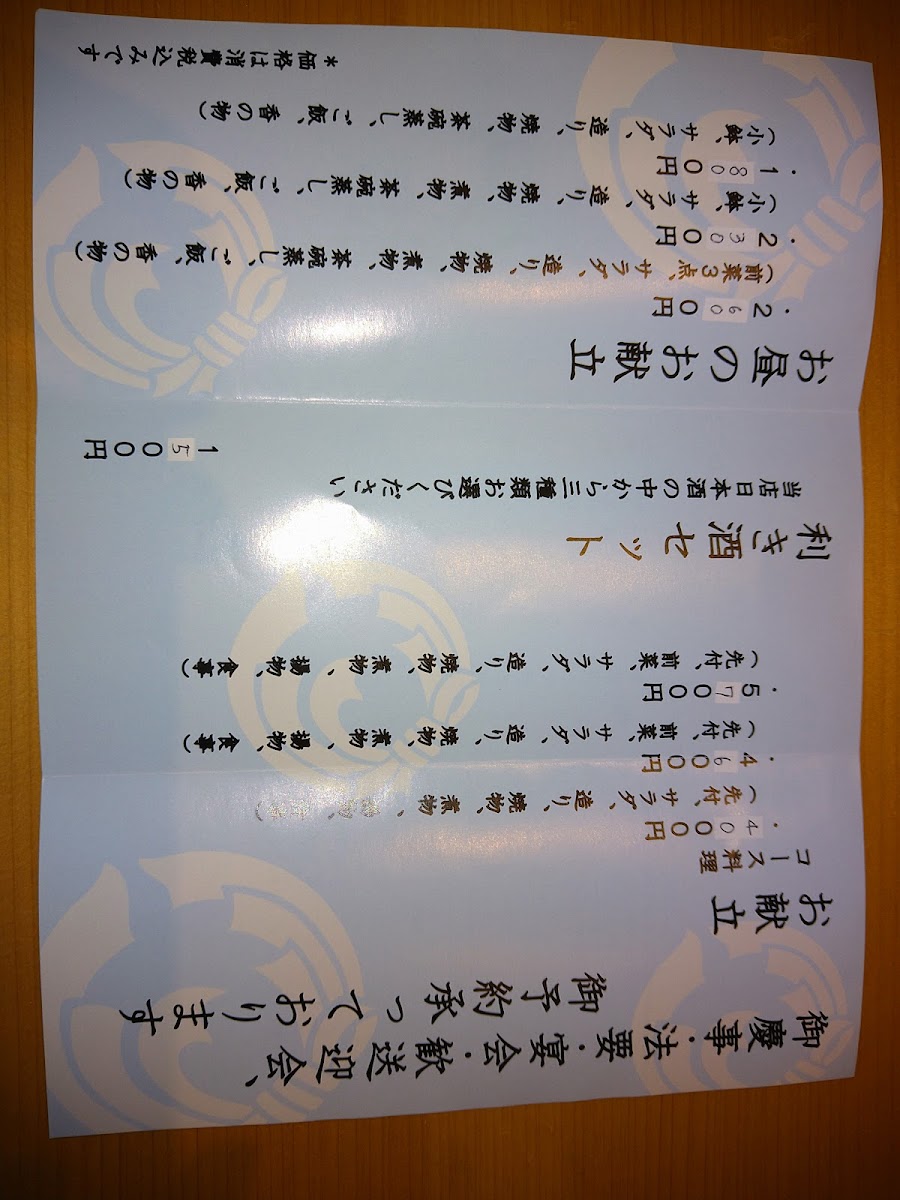 御慶事・法要・宴会・歓送迎会、
御予約承っております
お献立
コース料理
・4000円
(先付、サラダ、造り、焼物、煮物、
・4600円
(先付、前菜、サラダ、造り、焼物、煮物、揚物、食事)
・5700円
(先付、前菜、サラダ、造り、焼物、煮物、揚物、食事)
利き酒セット
当店日本酒の中から三種類お選びください
1500円
お昼のお献立
・2600円
(前菜3点、サラダ、造り、焼物、煮物、茶碗蒸し、ご飯、香の物)
・2300円
(小鉢、サラダ、造り、焼物、煮物、茶碗蒸し、ご飯、香の物)
・1800円
(小鉢、サラダ、造り、焼物、茶碗蒸し、ご飯、香の物)
*価格は消費税込みです